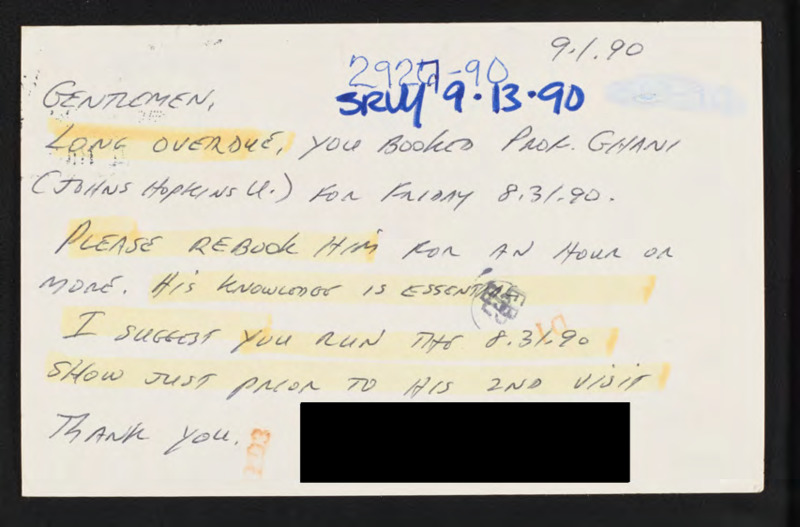 9.1.90
2927-90
GENTLEMEN,
SRW 9.13.90
LONG OVERDUE, YOU BOOKED PROF. GHANI
(JOHNS HOPKINS U.) FOR FRIDAY 8.31.90.
PLEASE REBOOK HIM FOR AN HOUR OR
MORE. HIS KNOWLEDGE IS ESSENTIAL
I SUGGEST YOU RUN THE 8.31.90
SHOW JUST PRIOR TO HIS 2ND VISIT
THANK YOU.